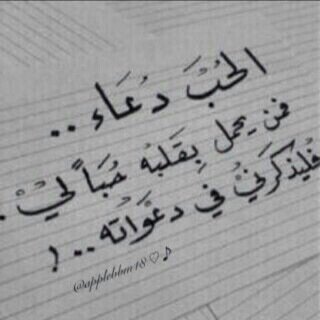 الحُبَ دُعَاء..
فمن يحمل بِقَلبهُ حُبَاً لِيْ.
فَليَذكرَنيْ في دعَوَاتَه..!
@applebbm18♡♪